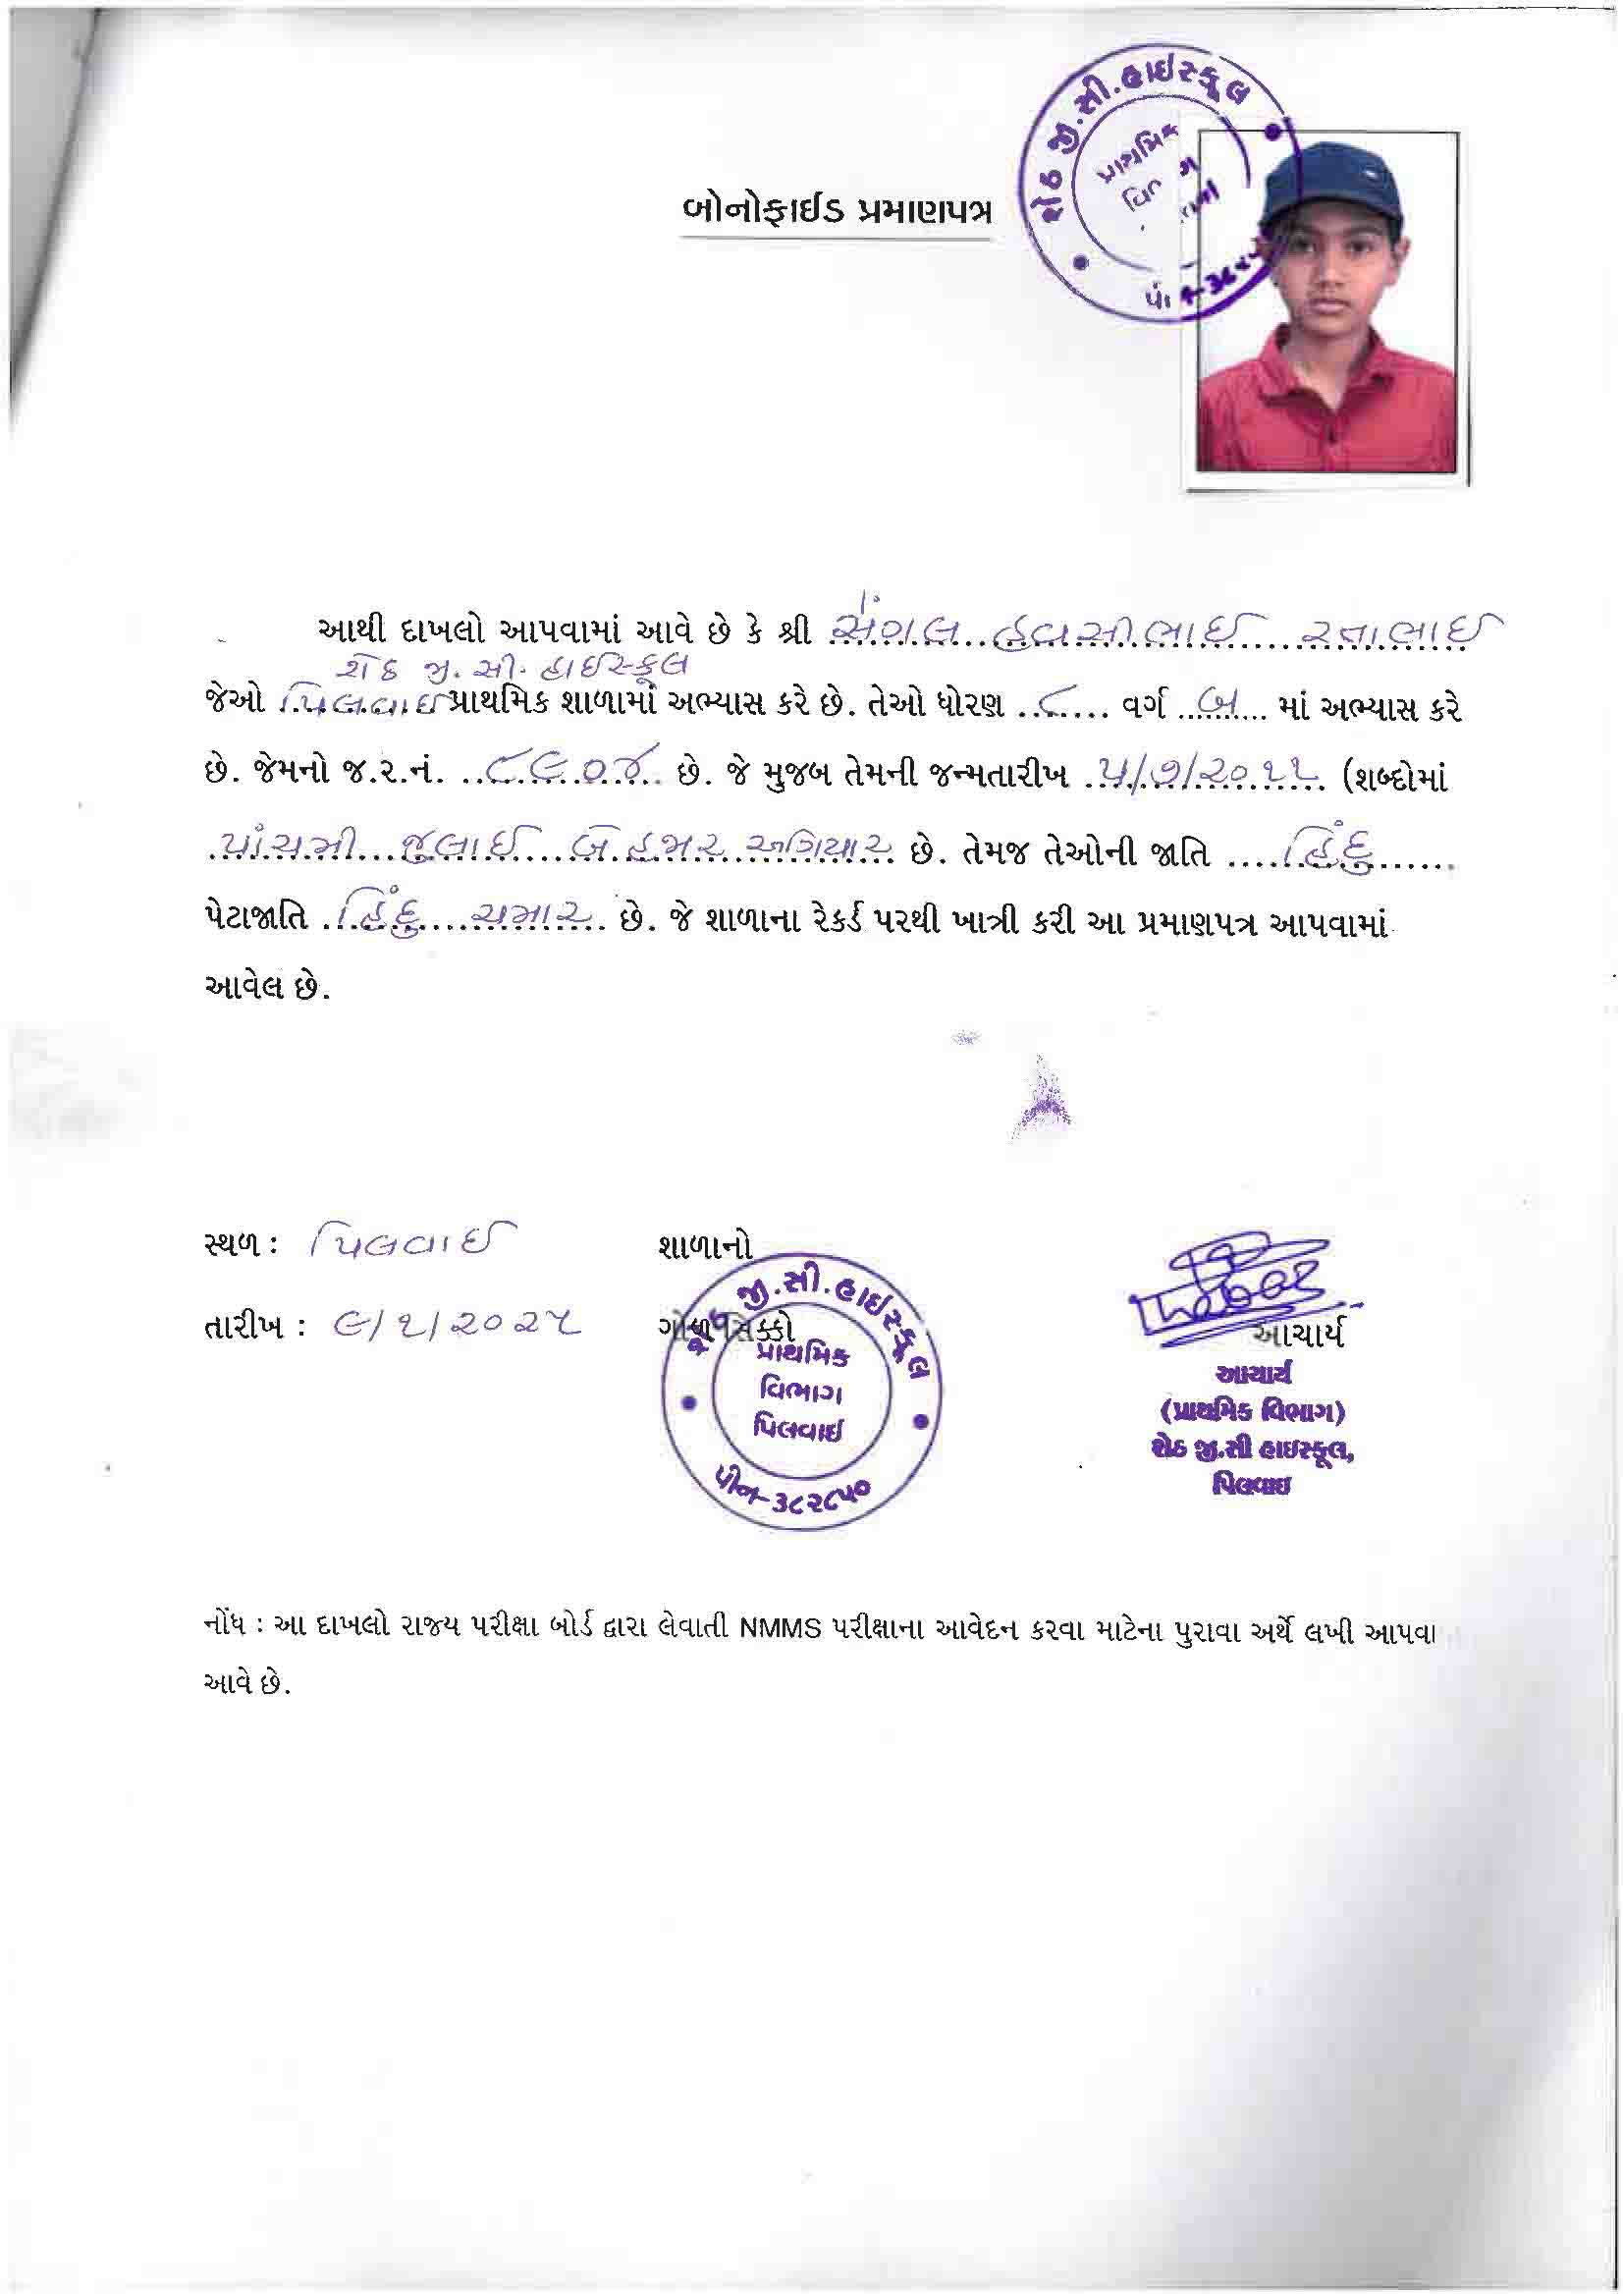 શેઠ જી.સી.હાઇસ્કૂલ
પ્રાથમિક
બોનોફાઈડ પ્રમાણપત્ર
આથી દાખલો આપવામાં આવે છે કે શ્રી ........ હવસીભાઈ રતાભાઈ
શેઠ જી. સી. હાઈસ્કૂલ
જેઓ પિલવાઈ પ્રાથમિક શાળામાં અભ્યાસ કરે છે. તેઓ ધોરણ ..૮.... વર્ગ ..બ.... માં અભ્યાસ કરે
છે. જેમનો જ.ર.નં. ..૮૯૦૪.. છે. જે મુજબ તેમની જન્મતારીખ ..૫/૭/૨૦૧૧.. (શબ્દોમાં
પાંચમી જુલાઈ બે હજાર અગિયાર છે. તેમજ તેઓની જાતિ ....હિંદુ......
પેટાજાતિ ..હિંદુ....ચમાર.. છે. જે શાળાના રેકર્ડ પરથી ખાત્રી કરી આ પ્રમાણપત્ર આપવામાં
આવેલ છે.
સ્થળ : પિલવાઈ
શાળાનો
તારીખ : ૯/૧/૨૦૨૫
ગોળ સિક્કો
શેઠ જી.સી.હાઇસ્કૂલ
પ્રાથમિક
વિભાગ
પિલવાઇ
પીન-૩૮૨૮૫૦
આચાર્ય
આચાર્ય
(પ્રાથમિક વિભાગ)
શેઠ જી.સી હાઇસ્કૂલ,
પિલવાઇ
નોંધ : આ દાખલો રાજ્ય પરીક્ષા બોર્ડ દ્વારા લેવાતી NMMS પરીક્ષાના આવેદન કરવા માટેના પુરાવા અર્થે લખી આપવા
આવે છે.